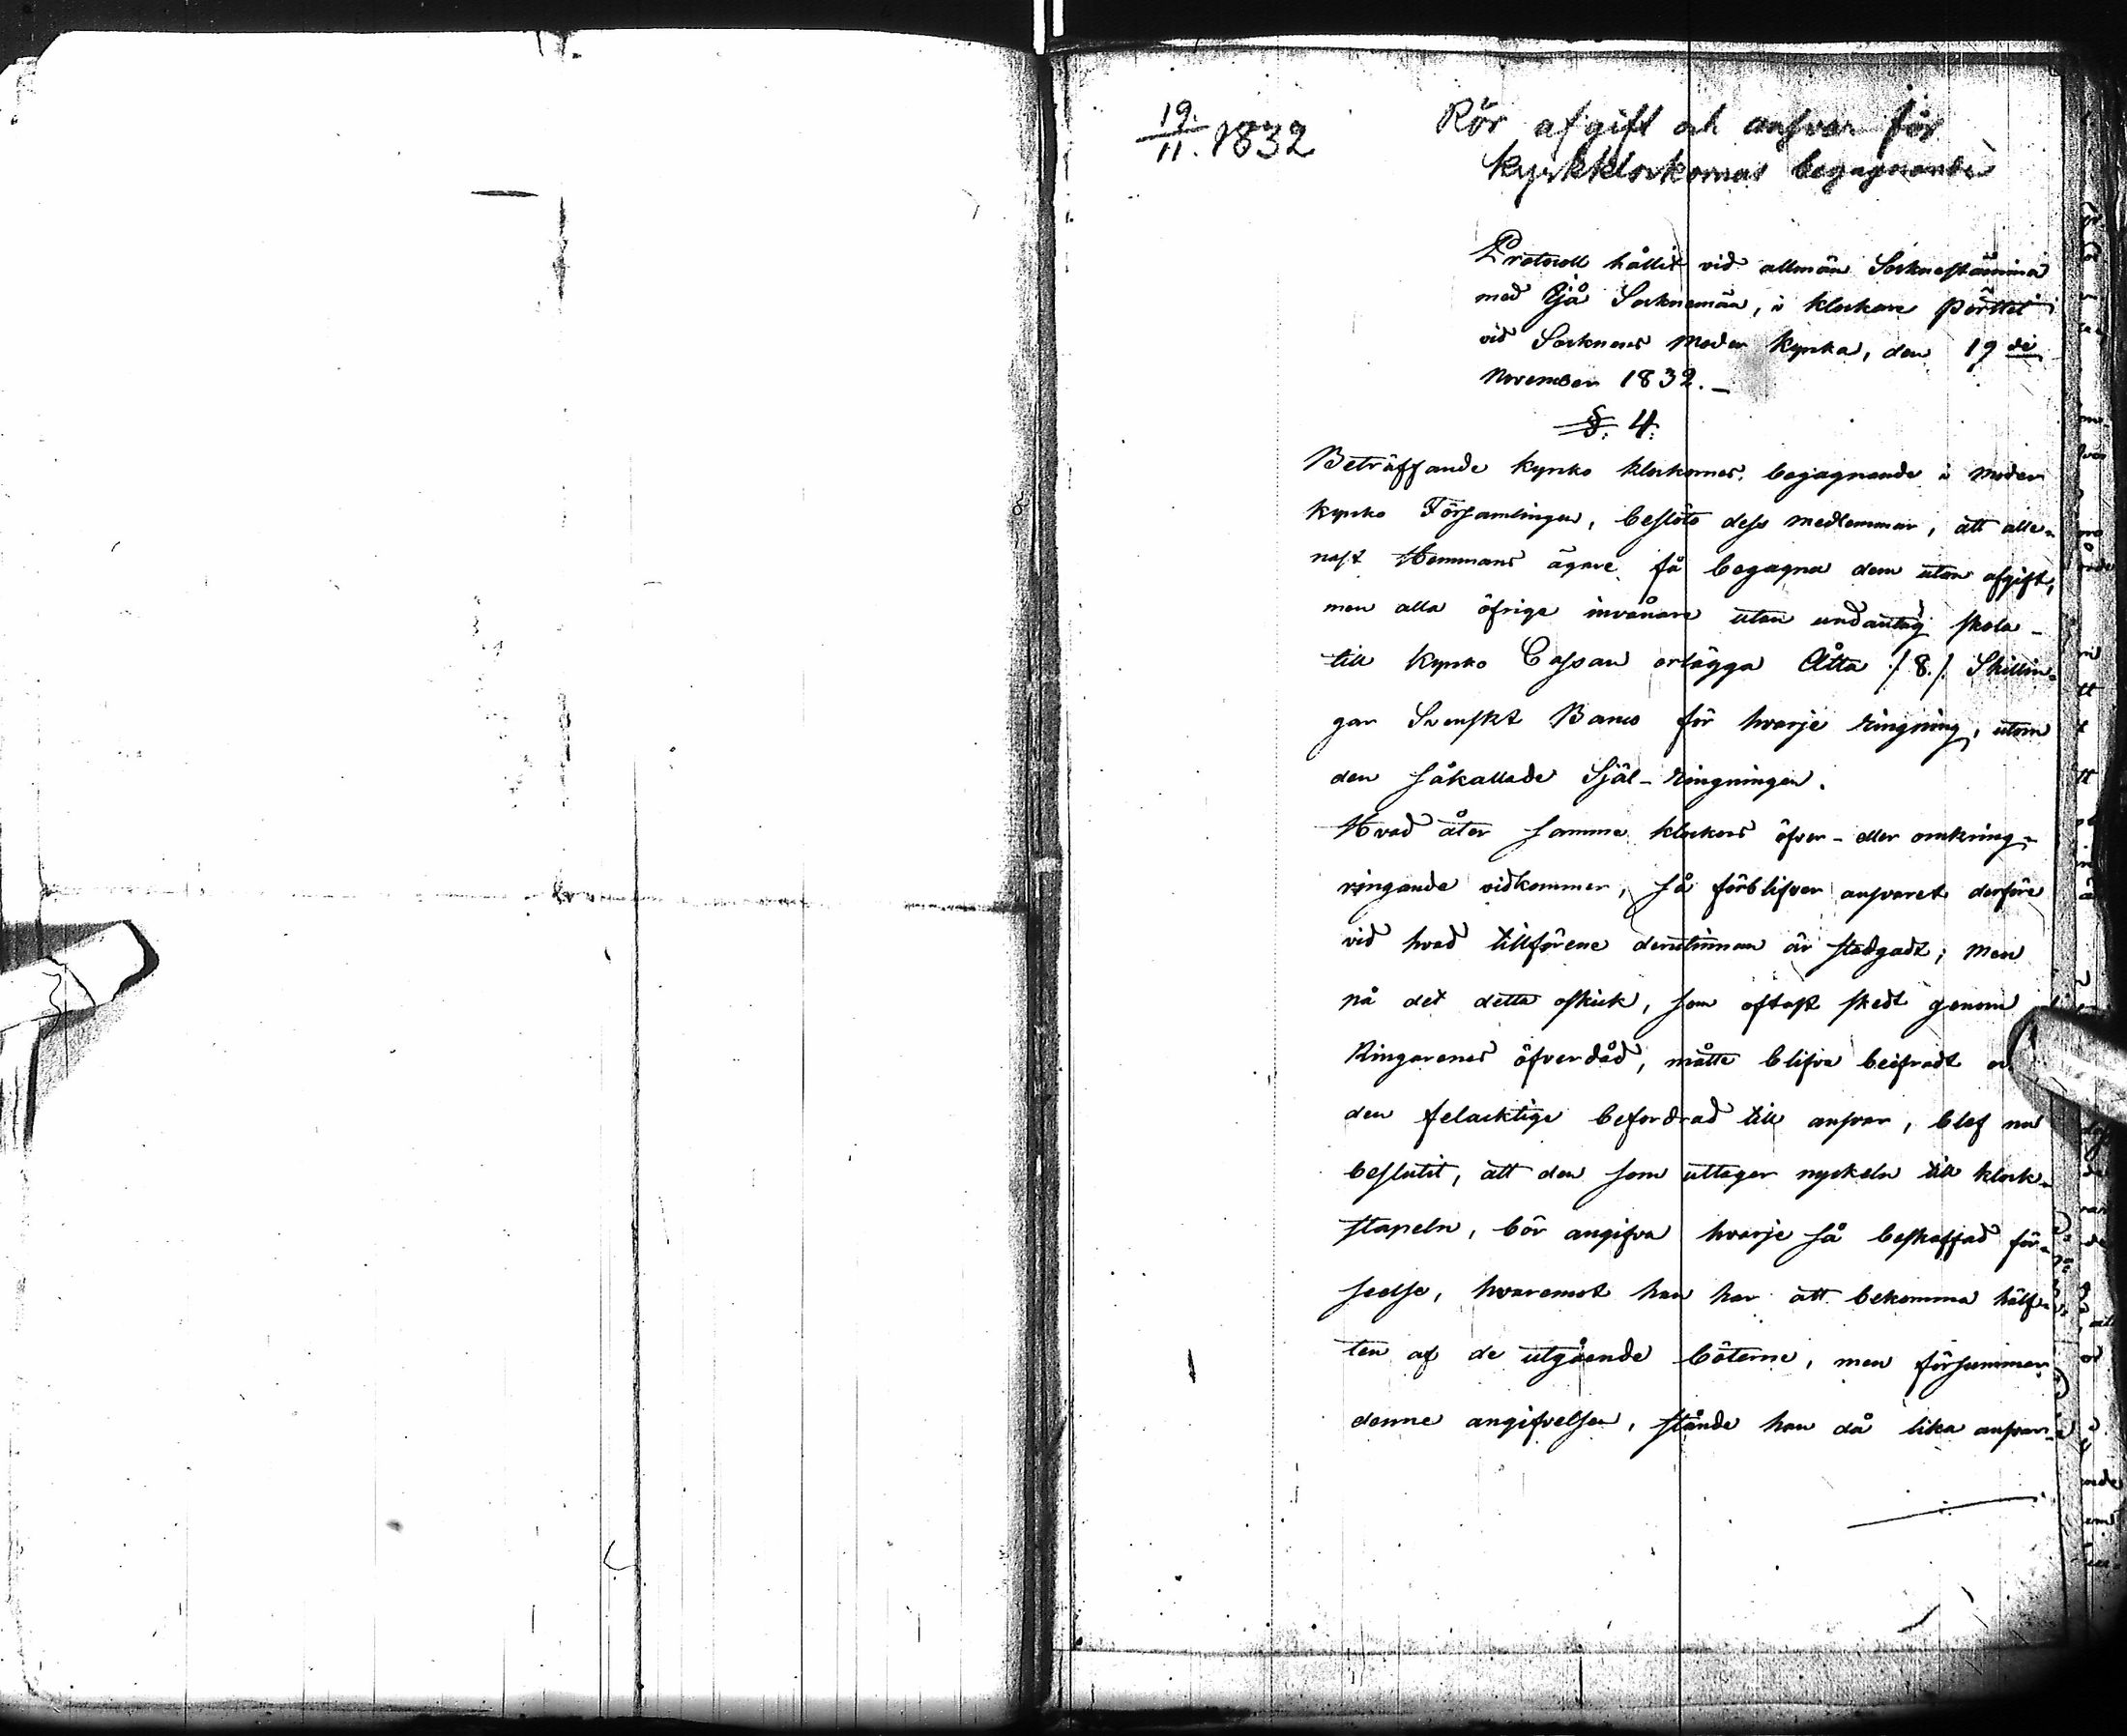 19./11. 1832
Rör afgift och ansvar för
kyrkklockornas begagnande
Protocoll hållit vid allmän Sockneståmma
med Ijå Socknemän, i klockare pörttet
vid Socknens Moder kyrka, den 19de
November 1832.
§. 4.
Beträffande kyrko klockornes begagnande i moder
kyrko Församlingen, beslöto dess medlemmar, att alle-
nast Hemmans ägare få begagna dem utan afgift,
men alla öfrige invånare utan undantag skola
till Kyrko Cassan erlägga Åtta /8./ Skillin-
gar Svenskt Banco för hvarje ringning, utom
den såkallade Själ-ringningen.
Hvad åter samma klockors öfver- eller omkring-
ringande vidkommer, så förblifver ansvaret derföre
vid hvad tillförene derutinnan är stadgadt; Men
på det detta oskick, som oftast skedt genom
Ringarenes öfverdåd, måtte blifva beifradt
den felacktige befordrad till ansvar, blef nu
beslutit, att den som uttager nyckeln till klock-
stapeln, bör angifva hvarje så beskaffad för-
seelse, hvaremot han har att bekomma hälf-
ten af de utgående böterne, men försummar
denne angifvelsen, stånde han då lika ansvar-